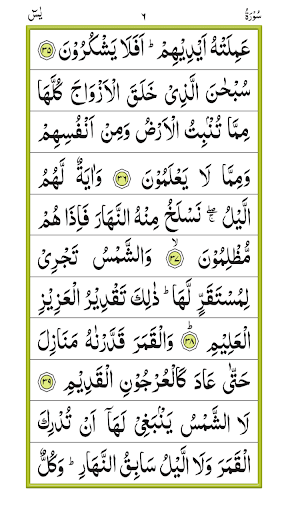 سُوْرَةُ ٦ يٰسٓ
عَمِلَتْهُ اَيْدِيْهِمْ ؕ اَفَلَا يَشْكُرُوْنَ ﴿۳۵﴾
سُبْحٰنَ الَّذِيْ خَلَقَ الْاَزْوَاجَ كُلَّهَا
مِمَّا تُنْۢبِتُ الْاَرْضُ وَمِنْ اَنْفُسِهِمْ
وَمِمَّا لَا يَعْلَمُوْنَ ﴿۳۶﴾ وَاٰيَةٌ لَّهُمُ
الَّيْلُ ۖۚ نَسْلَخُ مِنْهُ النَّهَارَ فَاِذَا هُمْ
مُّظْلِمُوْنَ ۙ﴿۳۷﴾ وَالشَّمْسُ تَجْرِيْ
لِمُسْتَقَرٍّ لَّهَا ؕ ذٰلِكَ تَقْدِيْرُ الْعَزِيْزِ
الْعَلِيْمِ ؕ﴿۳۸﴾ وَالْقَمَرَ قَدَّرْنٰهُ مَنَازِلَ
حَتّٰى عَادَ كَالْعُرْجُوْنِ الْقَدِيْمِ ﴿۳۹﴾
لَا الشَّمْسُ يَنْۢبَغِيْ لَهَاۤ اَنْ تُدْرِكَ
الْقَمَرَ وَلَا الَّيْلُ سَابِقُ النَّهَارِ ؕ وَكُلٌّ